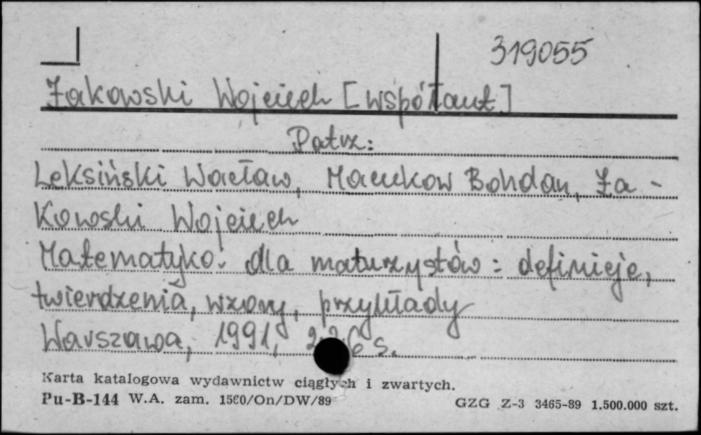 319055
Żakowski Wojciech [współaut]
Patrz:
Leksiński Wacław, Macukow Bohdan, Ża-
kowski Wojciech
Matematyka dla maturzystów: definicje,
twierdzenia, wzory, przykłady
Warszawa, 1991, s.
Karta katalogowa wydawnictw ciągłych i zwartych.
Pu-B-144 W.A. zam. 1560/On/DW/89 GZG Z-3 3465-89 1.500.000 szt.